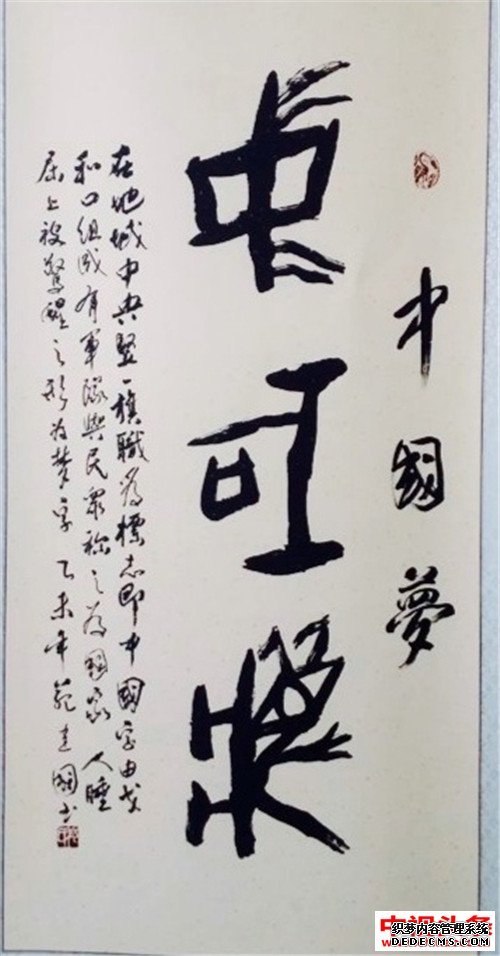 中國夢
中國夢
在地域中央竪一旗職為標志即中國字由戈
和口組成有軍隊與民眾称之為國家 人睡
床上被驚醒之形为梦字 乙未年范建國书
织梦内容管理系统
DEDECMS.COM